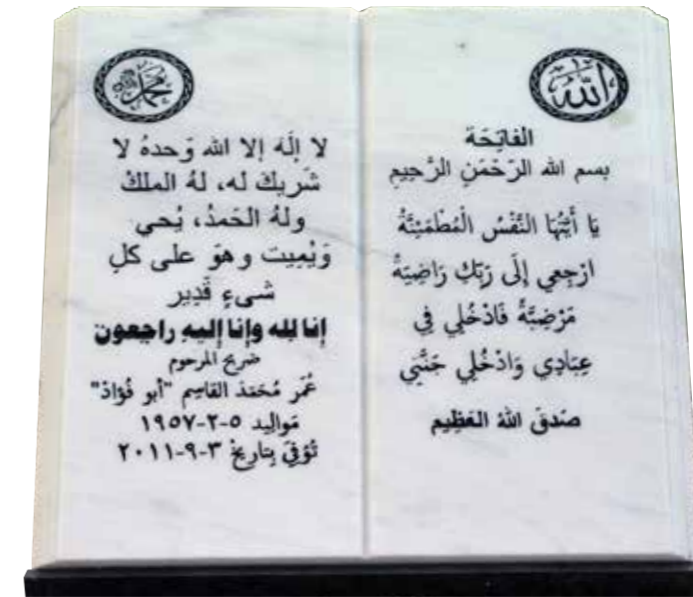 الله
الفاتِحَة
بسم الله الرّحْمَنِ الرَّحِيمِ
يَا أَيَّتُهَا النَّفْسُ الْمُطْمَئِنَّةُ
ارْجِعِي إِلَى رَبِّكِ رَاضِيَةً
مَرْضِيَّةً فَادْخُلِي فِي
عِبَادِي وَادْخُلِي جَنَّتِي
صَدقَ اللهُ العَظِيم
محمد
لا إلَه إلا الله وَحدهُ لا
شَريك له، لهُ الملكُ
ولهُ الحَمدُ، يُحي
وَيُمِيت وهوَ على كلِ
شىءٍ قَدِير
إنا لله وإنا إليهِ راجعون
ضريح المرحوم
عُمَر مُحَمَد القاسِم "أبو فُؤاد"
مَوالِيد ٥-٢-١٩٥٧
تُوُفِيَ بِتاريخْ ٣-٩-٢٠١١